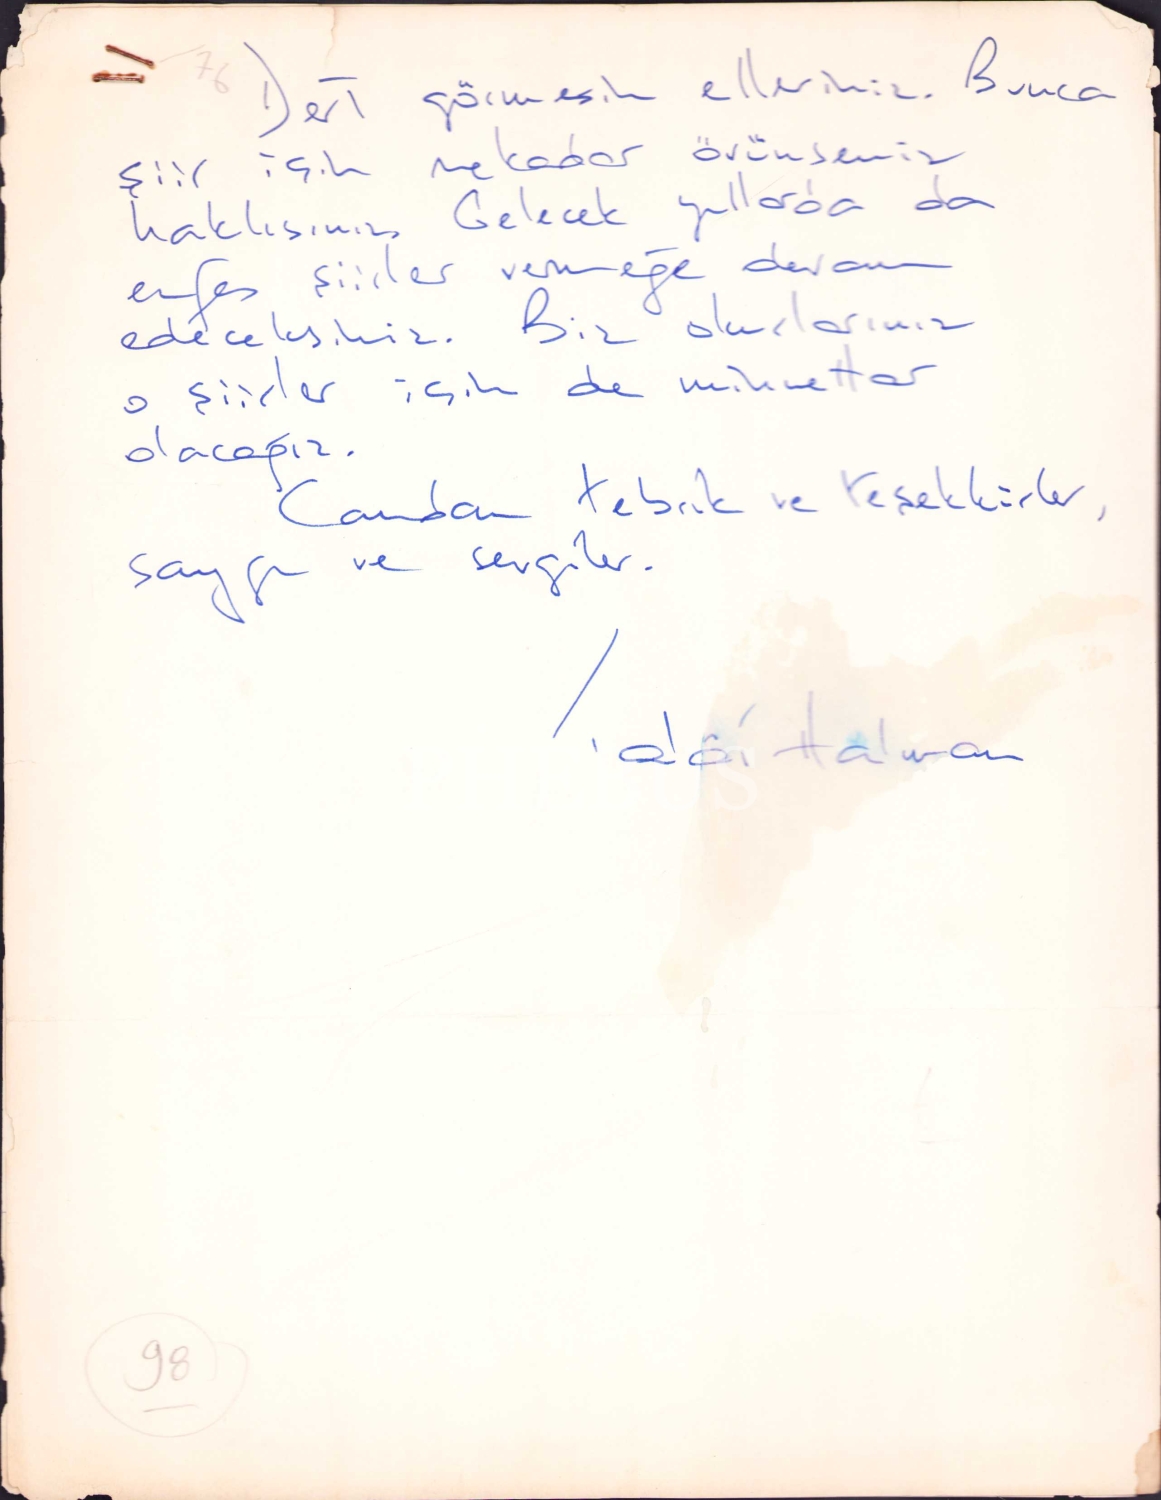 76
Dert görmesin elleriniz. Bunca
şiir için nekadar övünseniz
haklısınız. Gelecek yıllarda da
enfes şiirler vermeğe devam
edeceksiniz. Biz okurlarınız
o şiirler için de minnettar
olacağız.
Candan tebrik ve teşekkürler,
saygı ve sevgiler.
Halman
98